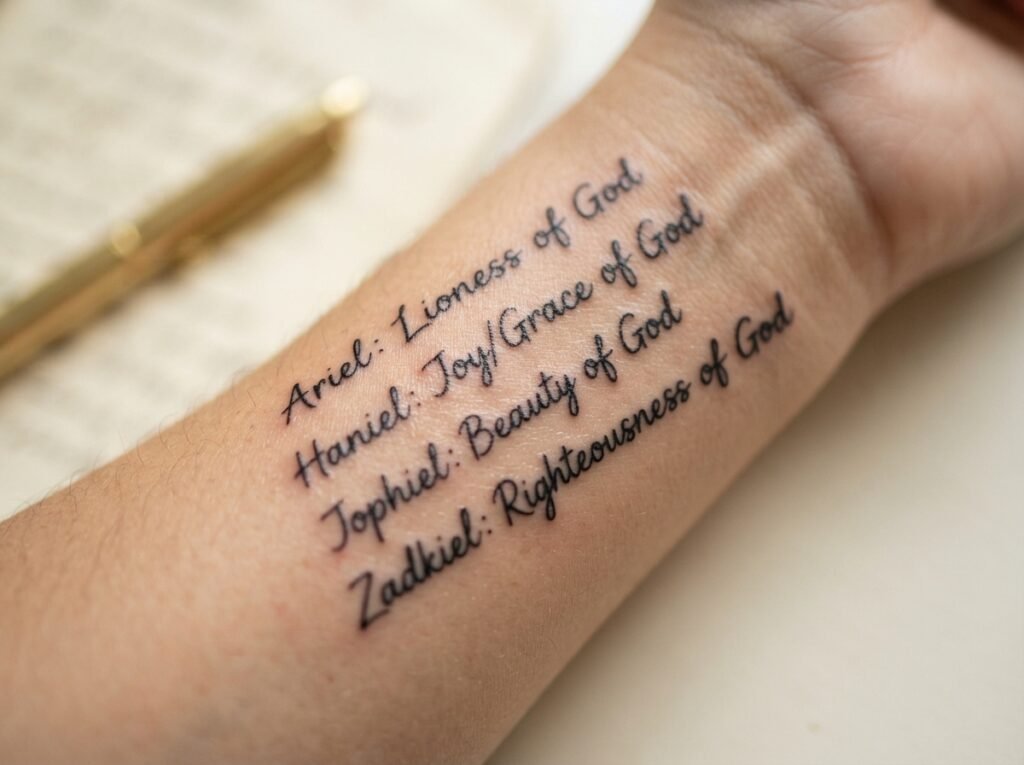 Ariel: Lioness of God
Haniel: Joy/Grace of God
Jophiel: Beauty of God
Zadkiel: Righteousness of God